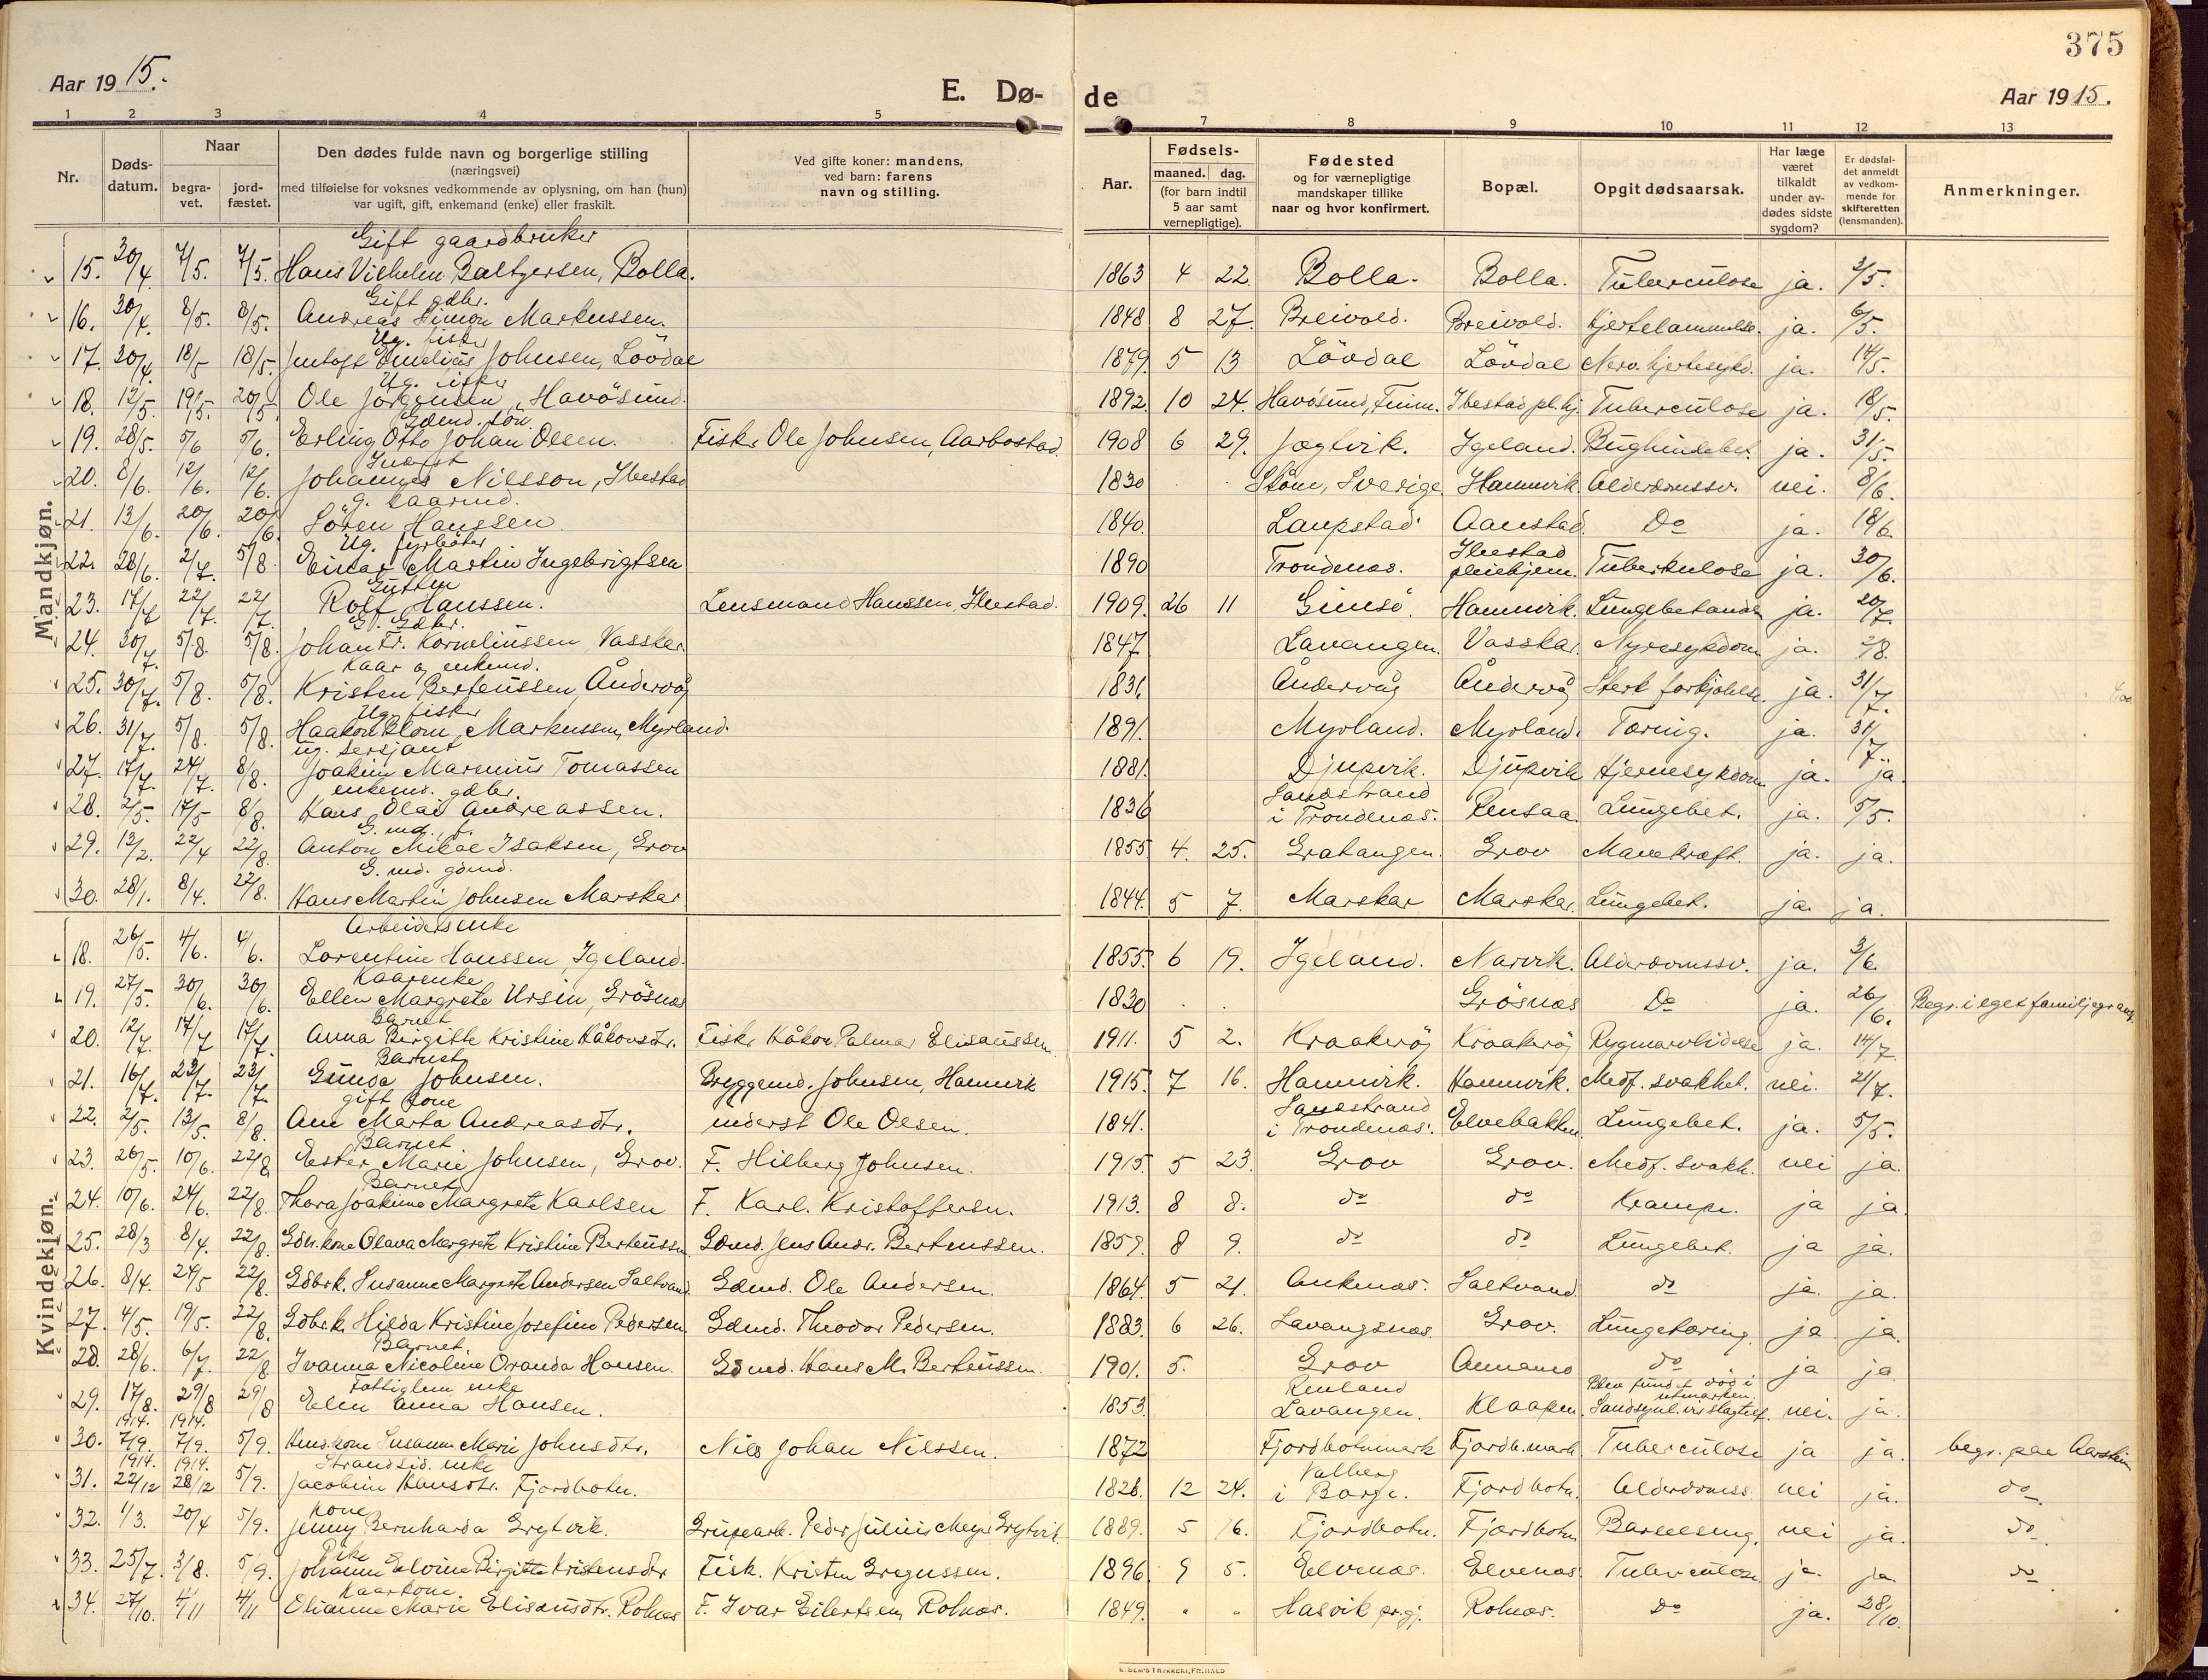 375
Aar 1915. E. Dø- de Aar 1915.
1 2 3 4 5 7 8 9 10 11 12 13
Nr. Døds-datum. Naar begra-vet. jord-fæstet. Den dødes fulde navn og borgerlige stilling (næringsvei) med tilføielse for voksnes vedkommende av oplysning, om han (hun) var ugift, gift, enkemand (enke) eller fraskilt. Ved gifte koner: mandens, ved barn: farens navn og stilling. Aar. Fødsels- maaned. dag. (for barn indtil 5 aar samt vernepligtige). Fødested og for værnepligtige mandskaper tillike naar og hvor konfirmert. Bopæl. Opgit dødsaarsak. Har læge været tilkaldt under av-dødes sidste sygdom? Er dødsfal-det anmeldt av vedkom-mende for skifteretten (lensmanden). Anmerkninger.
Mandkjøn.
Gift gaardbruker
15. 30/4. 7/5. 7/5. Hans Vilhelm Baltzersen, Bolla. 1863 4 22. Bolla. Bolla. Tuberculose ja. 3/5.
Gift gdbr.
16. 30/4. 8/5. 8/5. Andreas Simon Markussen. 1848 8 27. Breivold. Breivold. Hjertelammelse. ja. 6/5.
Ug. fisker
17. 30/4. 18/5 18/5. Jentoft Emelius Johnsen, Lövdal 1879. 5 13 Lövdal Lövdal Nerv. hjertesykd. ja. 14/5.
Ug. fisker
18. 12/5. 19/5. 20/5 Ole Jörgensen, Havösund. 1892. 10 24. Havösund, Finm. Ibestad pl.hj. Tuberculose ja. 18/5.
Gdmd. sön.
19. 28/5. 5/6 5/6. Erling Otto Johan Olsen. Fisker Ole Johnsen, Aarbostad. 1908 6 29. Jægtvik. Igeland. Bughindebet. ja. 31/5.
Inderst
20. 8/6. 12/6. 12/6. Johannes Nilsson, Ibestad 1830 Ström, Sverige Hamnvik. Alderdomssv. nei. 8/6.
g. kaarmd.
21. 13/6. 20/6. 20/6. Sören Hanssen. 1840. Laupstad Aanstad. Do ja. 18/6.
Ug. fyrböter
22. 28/6. 2/7. 5/8. Einar Martin Ingebrigtsen 1890 Trondenæs. Ibestad pleiehjem. Tuberkulose ja. 30/6.
Gutten
23. 17/7 22/7. 22/7. Rolf Hanssen. Lensmand Hanssen, Ibestad. 1909. 26 11 Gimsö Hamnvik. Lungebetændelse ja. 20/7.
G. Gdbr.
24. 30/7. 5/8. 5/8. Johan Fr. Korneliussen Vasskar. 1847 Lavangen. Vasskar. Nyresykdom ja. 2/8.
Kaar og enkemd.
25. 30/7. 5/8. 5/8. Kristen Berteussen, Åndervåg 1831. Åndervåg Åndervåg Sterk forkjölelse. ja. 31/7.
Ug. fisker
26. 31/7. 5/8. 5/8. Haakon Blom Markussen, Myrland. 1891. Myrland. Myrland. Tæring. ja. 31/7.
ug. sersjant
27. 17/7. 24/7. 8/8. Joakim Marenius Tomassen 1881. Djupvik. Djupvik Hjernesykdom ja. ja.
enkemd. gdbr.
28. 2/5. 17/5 8/8. Hans Olai Andreassen. 1836 Sandstrand i Trondenæs. Rensaa. Lungebet. ja. 5/5.
G. md. f.
29. 13/2. 22/4 22/8. Anton Mikal Isaksen, Grov 1855 4. 25. Gratangen. Grov Mavekræft. ja. ja.
G. md. gdmd.
30. 28/1. 8/4. 22/8. Hans Martin Johnsen Marskar 1844. 5 7. Marskar Marskar. Lungebet. ja. ja.
Kvindekjøn.
Arbeidersenke
18. 26/5. 4/6. 4/6. Lorentine Hanssen, Igeland. 1855. 6 19. Igeland. Narvik. Alderdomssv. ja. 3/6.
Kaarenke
19. 27/5. 30/6. 30/6. Ellen Margrete Ursin, Grösnæs 1830 Grösnæs Do ja. 26/6. Begr. i eget familjegrav.
Barnet
20. 12/7. 17/7 17/7. Anna Birgitte Kristine Håkonsdtr. Fisker Håkon Palmar Elisæussen 1911. 5 2. Kraakerøj Kraakerøj Rygmarvslidelse ja. 14/7.
Barnet
21. 16/7. 23/7. 23/7. Gunda Johnsen. Bryggemd. Johnsen, Hamnvik 1915. 7 16. Hamnvik. Hamnvik. Medf. svakhet. nei. 21/7.
gift kone
22. 2/5. 13/5. 8/8. Ane Marta Andreasdtr. inderst Ole Olsen. 1841. Sandstrand i Trondenæs. Elvebakken. Lungebet. ja. 5/5.
Barnet
23. 26/5. 10/6. 22/8 Ester Marie Johnsen, Grov. F. Hilberg Johnsen. 1915. 5 23. Grov Grov. Medf. svakh. nei ja.
Barnet
24. 10/6. 24/6. 22/8. Thora Joakime Margrete Karlsen F. Karl. Kristoffersen. 1913. 8 8. do do Krampe. ja ja.
25. 28/3 8/4. 22/8. Gdbr. kone Olava Margrete Kristine Berteussen Gdmd. Jens Andr. Berteussen. 1859. 8 9. do do Lungebet. ja ja.
26. 8/4. 24/5 22/8. Gdbr.k. Susanne Margrete Andersen Saltvand. Gdmd. Ole Andersen. 1864. 5 21. Ankenæs. Saltvand. do ja. ja.
27. 4/5. 19/5. 22/8. Gdbr.k. Hilda Kristine Josefine Pedersen. Gdmd. Theodor Pedersen. 1883. 6 26. Lavangsnæs. Grov. Lungetæring. ja ja.
Barnet
28. 28/6. 6/7. 22/8. Ivanna Nicoline Oranda Hansen. Gdmd. Hans M. Berteussen. 1901. 5. Grov Annamo do ja ja.
Fattiglem enke
29. 17/8. 29/8 29/8 Elen Anna Hansen. 1853. Renland Lavangen. Klaapen. Blev fundet död i utmarken. Sandsynl.vis slagtilf. nei. ja.
1914. 1914.
30. 7/9. 7/9. 5/9. kone Susanne Marie Johnsdtr. Nils Johan Nilssen. 1872 Fjordbotnmark Fjordb.mark Tuberculose ja ja. begr. paa Aarstein
1914. 1914. Strandsid. enke
31. 22/12 28/12 5/9. Jacobine Hansdtr. Fjordbotn. 1828. 12 24. Valberg i Borge. Fjordbotn. Alderdomss. nei ja. do
Kone
32. 1/3. 20/4 5/9. Jenny Bernharda Grytvik. Grupearb. Peder Julius Meyer Grytvik 1889. 5 16. Fjordbotn. Fjordbotn Barselseng. nei ja. do
Pike
33. 25/7. 3/8. 5/9. Johanne Elvine Birgitte Kristensdtr Fisk. Kristen Gregussen. 1896. 9 5. Elvenæs. Elvenæs. Tuberculose ja. ja do
Kaarkone
34. 27/10. 4/11 4/11 Elianne Marie Elisæusdtr. Rolnæs F. Ivar Eilertsen, Rolnæs. 1849. " " Hasvik pr.gj. Rolnæs. Do ja. 28/10.